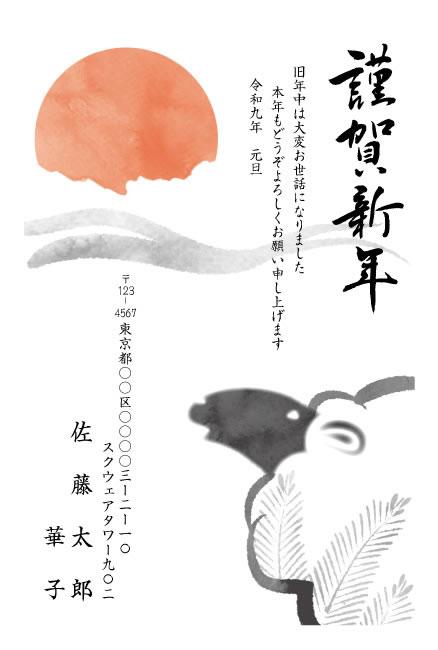 謹賀新年
旧年中は大変お世話になりました
本年もどうぞよろしくお願い申し上げます
令和九年　元旦
〒123-4567
東京都〇〇区〇〇〇〇三ー二ー一〇
スクウェアタワー九〇二
佐藤太郎
華子